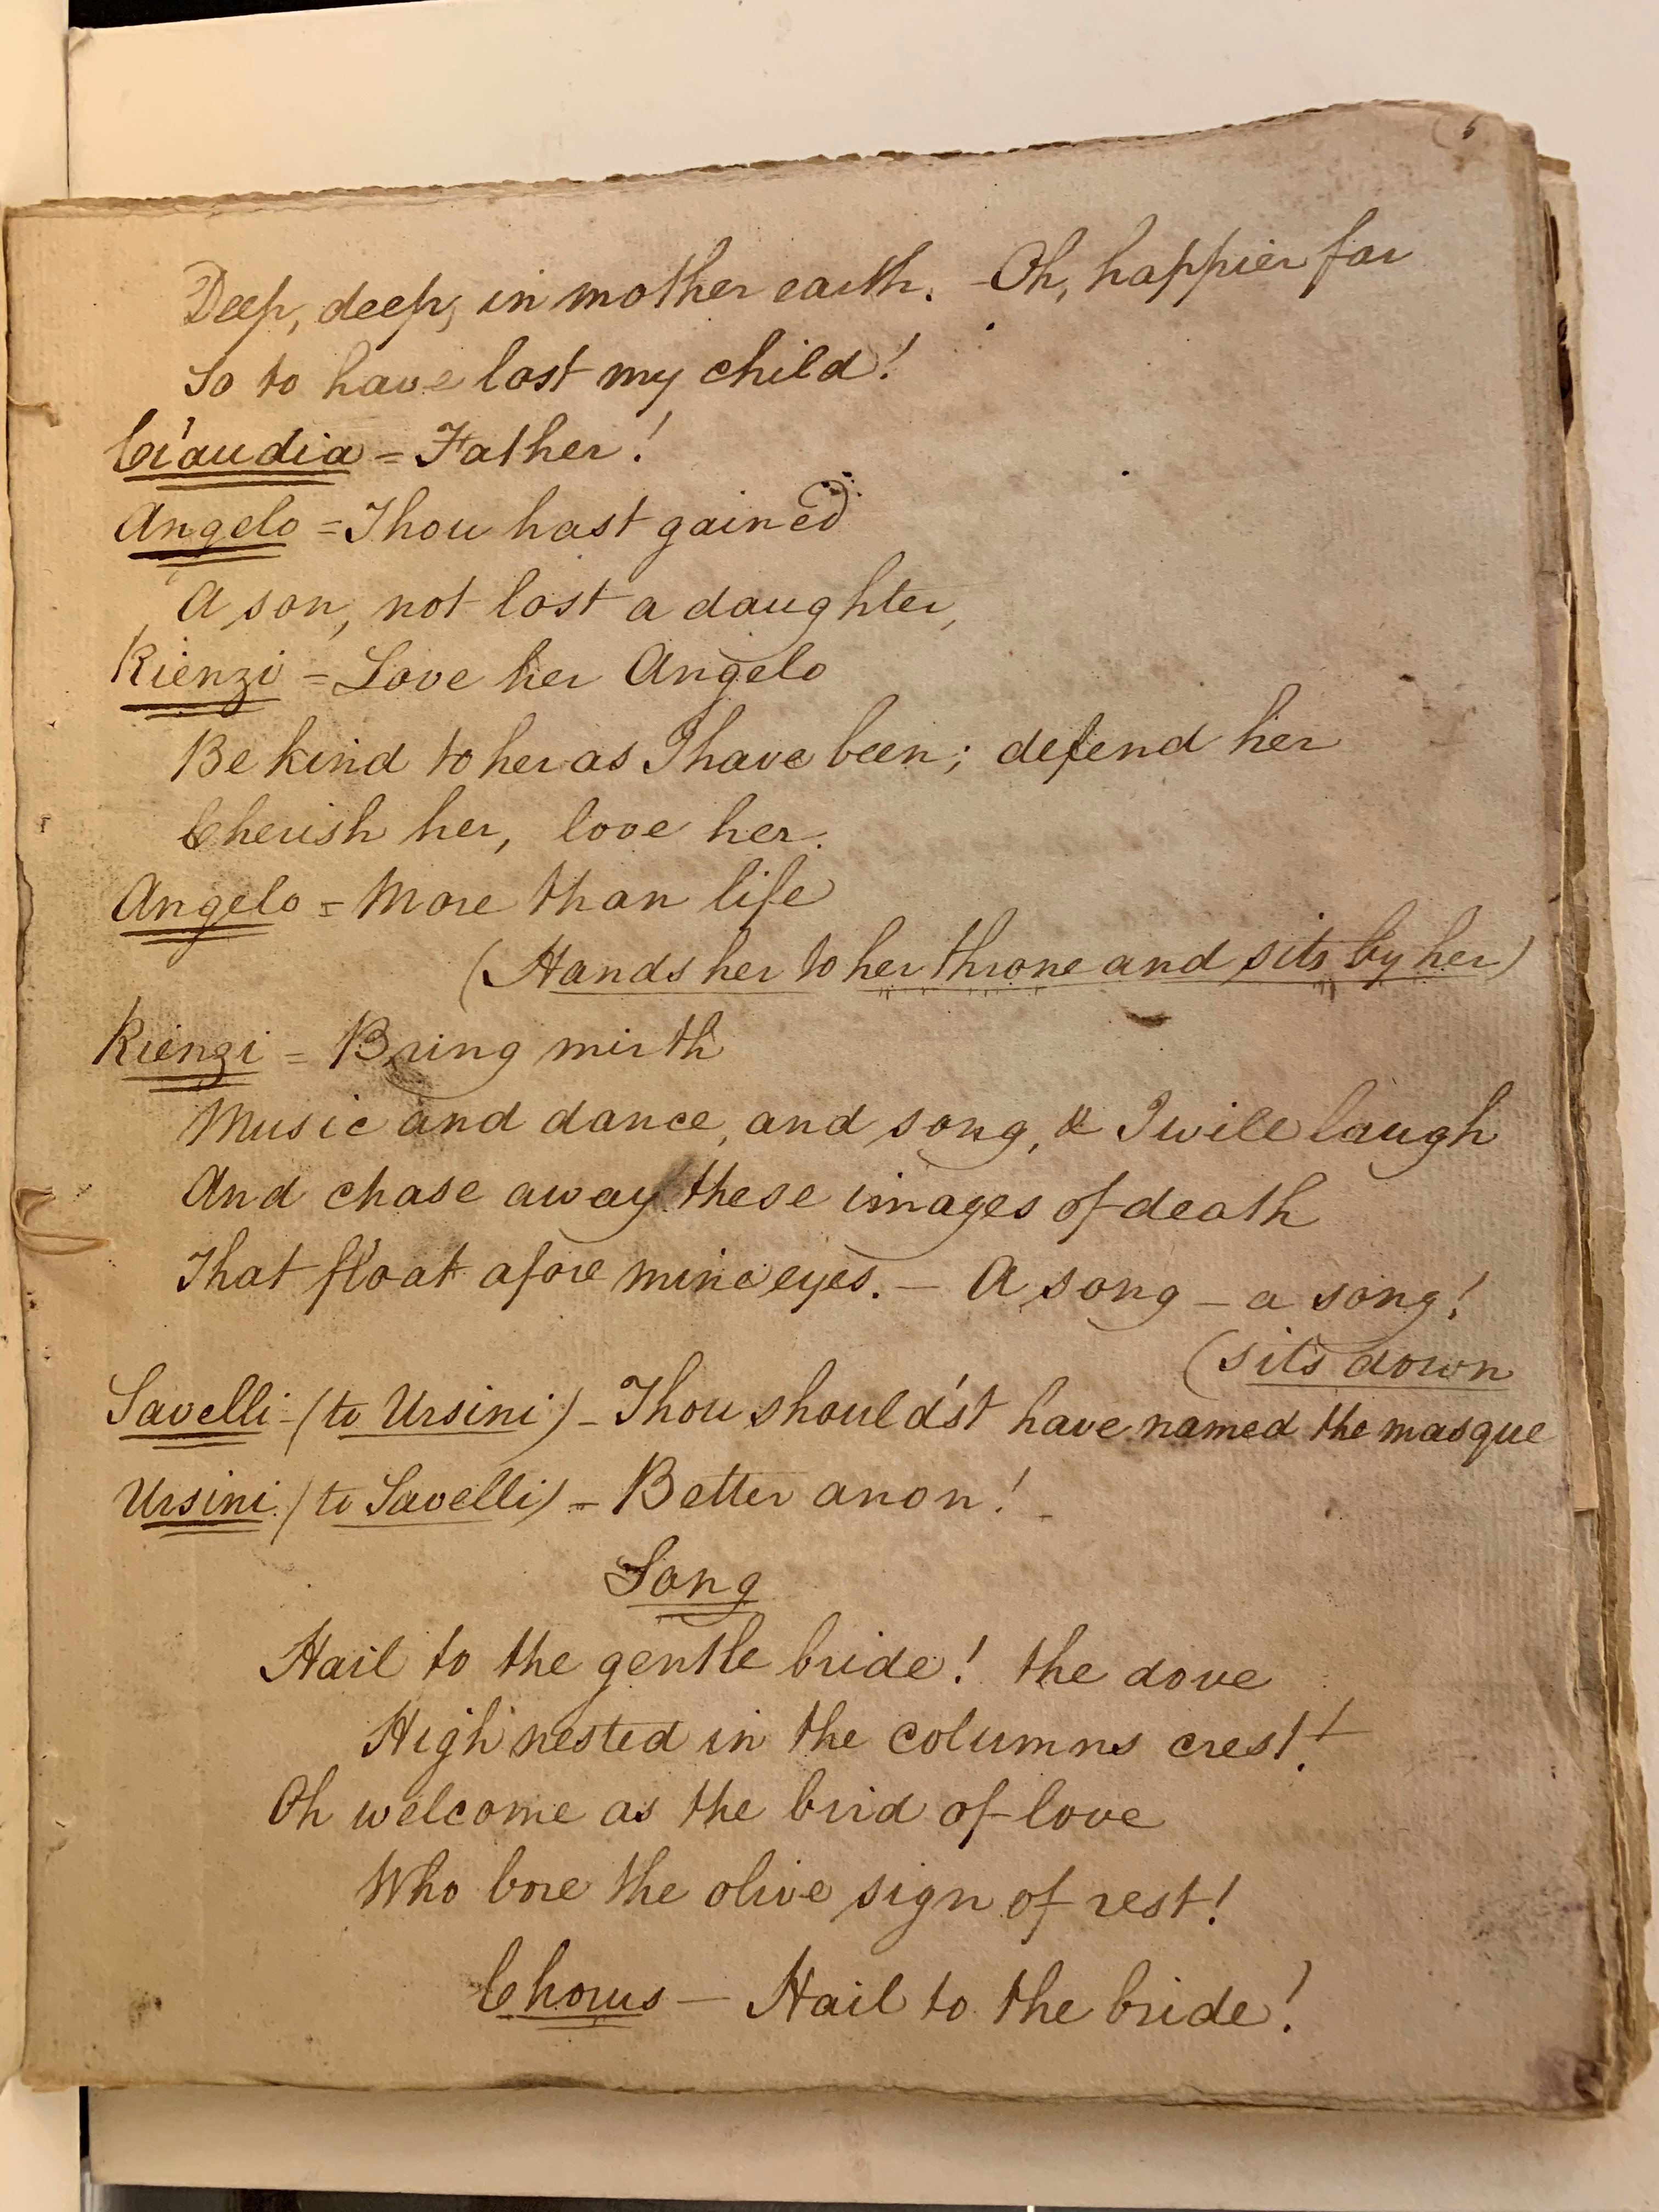 5
Deep, deep, in mother earth. - Oh, happier far
So to have lost my child!
Claudia = Father!
Angelo = Thou hast gained
A son, not lost a daughter,
Rienzi = Love her Angelo
Be kind to her as I have been; defend her
Cherish her, love her.
Angelo = More than life
(Hands her to her throne and sits by her)
Rienzi = Bring mirth
Music and dance, and song, & I will laugh
And chase away these images of death
That float afore mine eyes. — A song — a song!
(sits down
Savelli - (to Ursini) - Thou should'st have named the masque
Ursini. (to Savelli) = Better anon!
Song
Hail to the gentle bride! the dove
High nested in the columns crest!
Oh welcome as the bird of love
Who bore the olive sign of rest!
Chorus — Hail to the bride!